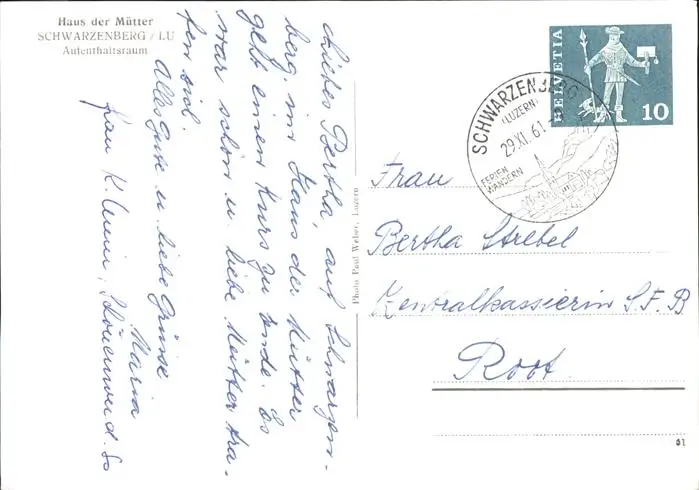 Haus der Mütter
SCHWARZENBERG / LU
Aufenthaltsraum
Liebes Bertha, auf Schwarzen-
berg im Haus der Mütter
geht einen Kurs zu Ende. Es
war schön u. liebe Mütter tra-
fen sich.
Alles Gute u. liebe Grüsse
Maria
Frau K. Schönenwerd. So
Photo Paul Weber, Luzern
HELVETIA
10
SCHWARZENBERG
(LUZERN)
29.XI.61
FERIEN
WANDERN
Frau
Bertha Strebel
Zentralkassierin S.F.B
Root